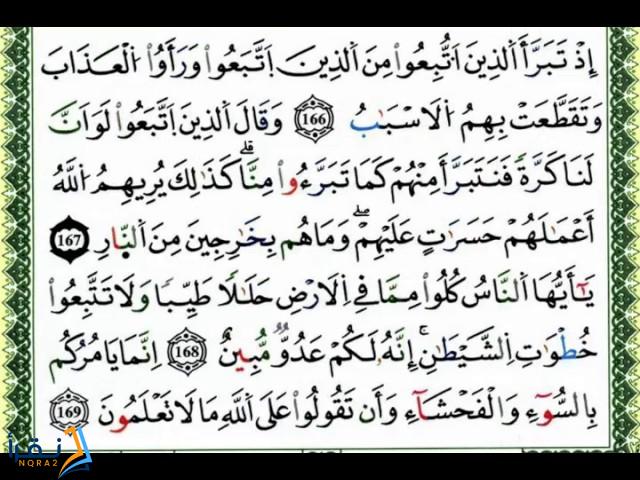 إِذْ تَبَرَّأَ ٱلَّذِينَ ٱتُّبِعُواْ مِنَ ٱلَّذِينَ ٱتَّبَعُواْ وَرَأَوُاْ ٱلْعَذَابَ
وَتَقَطَّعَتْ بِهِمُ ٱلَاسْبَٰبُ 166 وَقَالَ ٱلَّذِينَ ٱتَّبَعُواْ لَوَ اَنَّ
لَنَا كَرَّةً فَنَتَبَرَّأَ مِنْهُمْ كَمَا تَبَرَّءُواْ مِنَّا كَذَٰلِكَ يُرِيهِمُ ٱللَّهُ
أَعْمَٰلَهُمْ حَسَرَٰتٍ عَلَيْهِمْ وَمَا هُم بِخَٰرِجِينَ مِنَ ٱلنَّارِ 167
يَٰٓأَيُّهَا ٱلنَّاسُ كُلُواْ مِمَّا فِے ٱلَارْضِ حَلَٰلًا طَيِّبًا وَلَا تَتَّبِعُواْ
خُطْوَٰتِ ٱلشَّيْطَٰنِ إِنَّهُۥ لَكُمْ عَدُوٌّ مُّبِينٌ 168 اِنَّمَا يَامُرُكُم
بِالسُّوٓءِ وَالْفَحْشَآءِ وَأَن تَقُولُواْ عَلَى ٱللَّهِ مَا لَا تَعْلَمُونَ 169
نقرأ
NQRA2